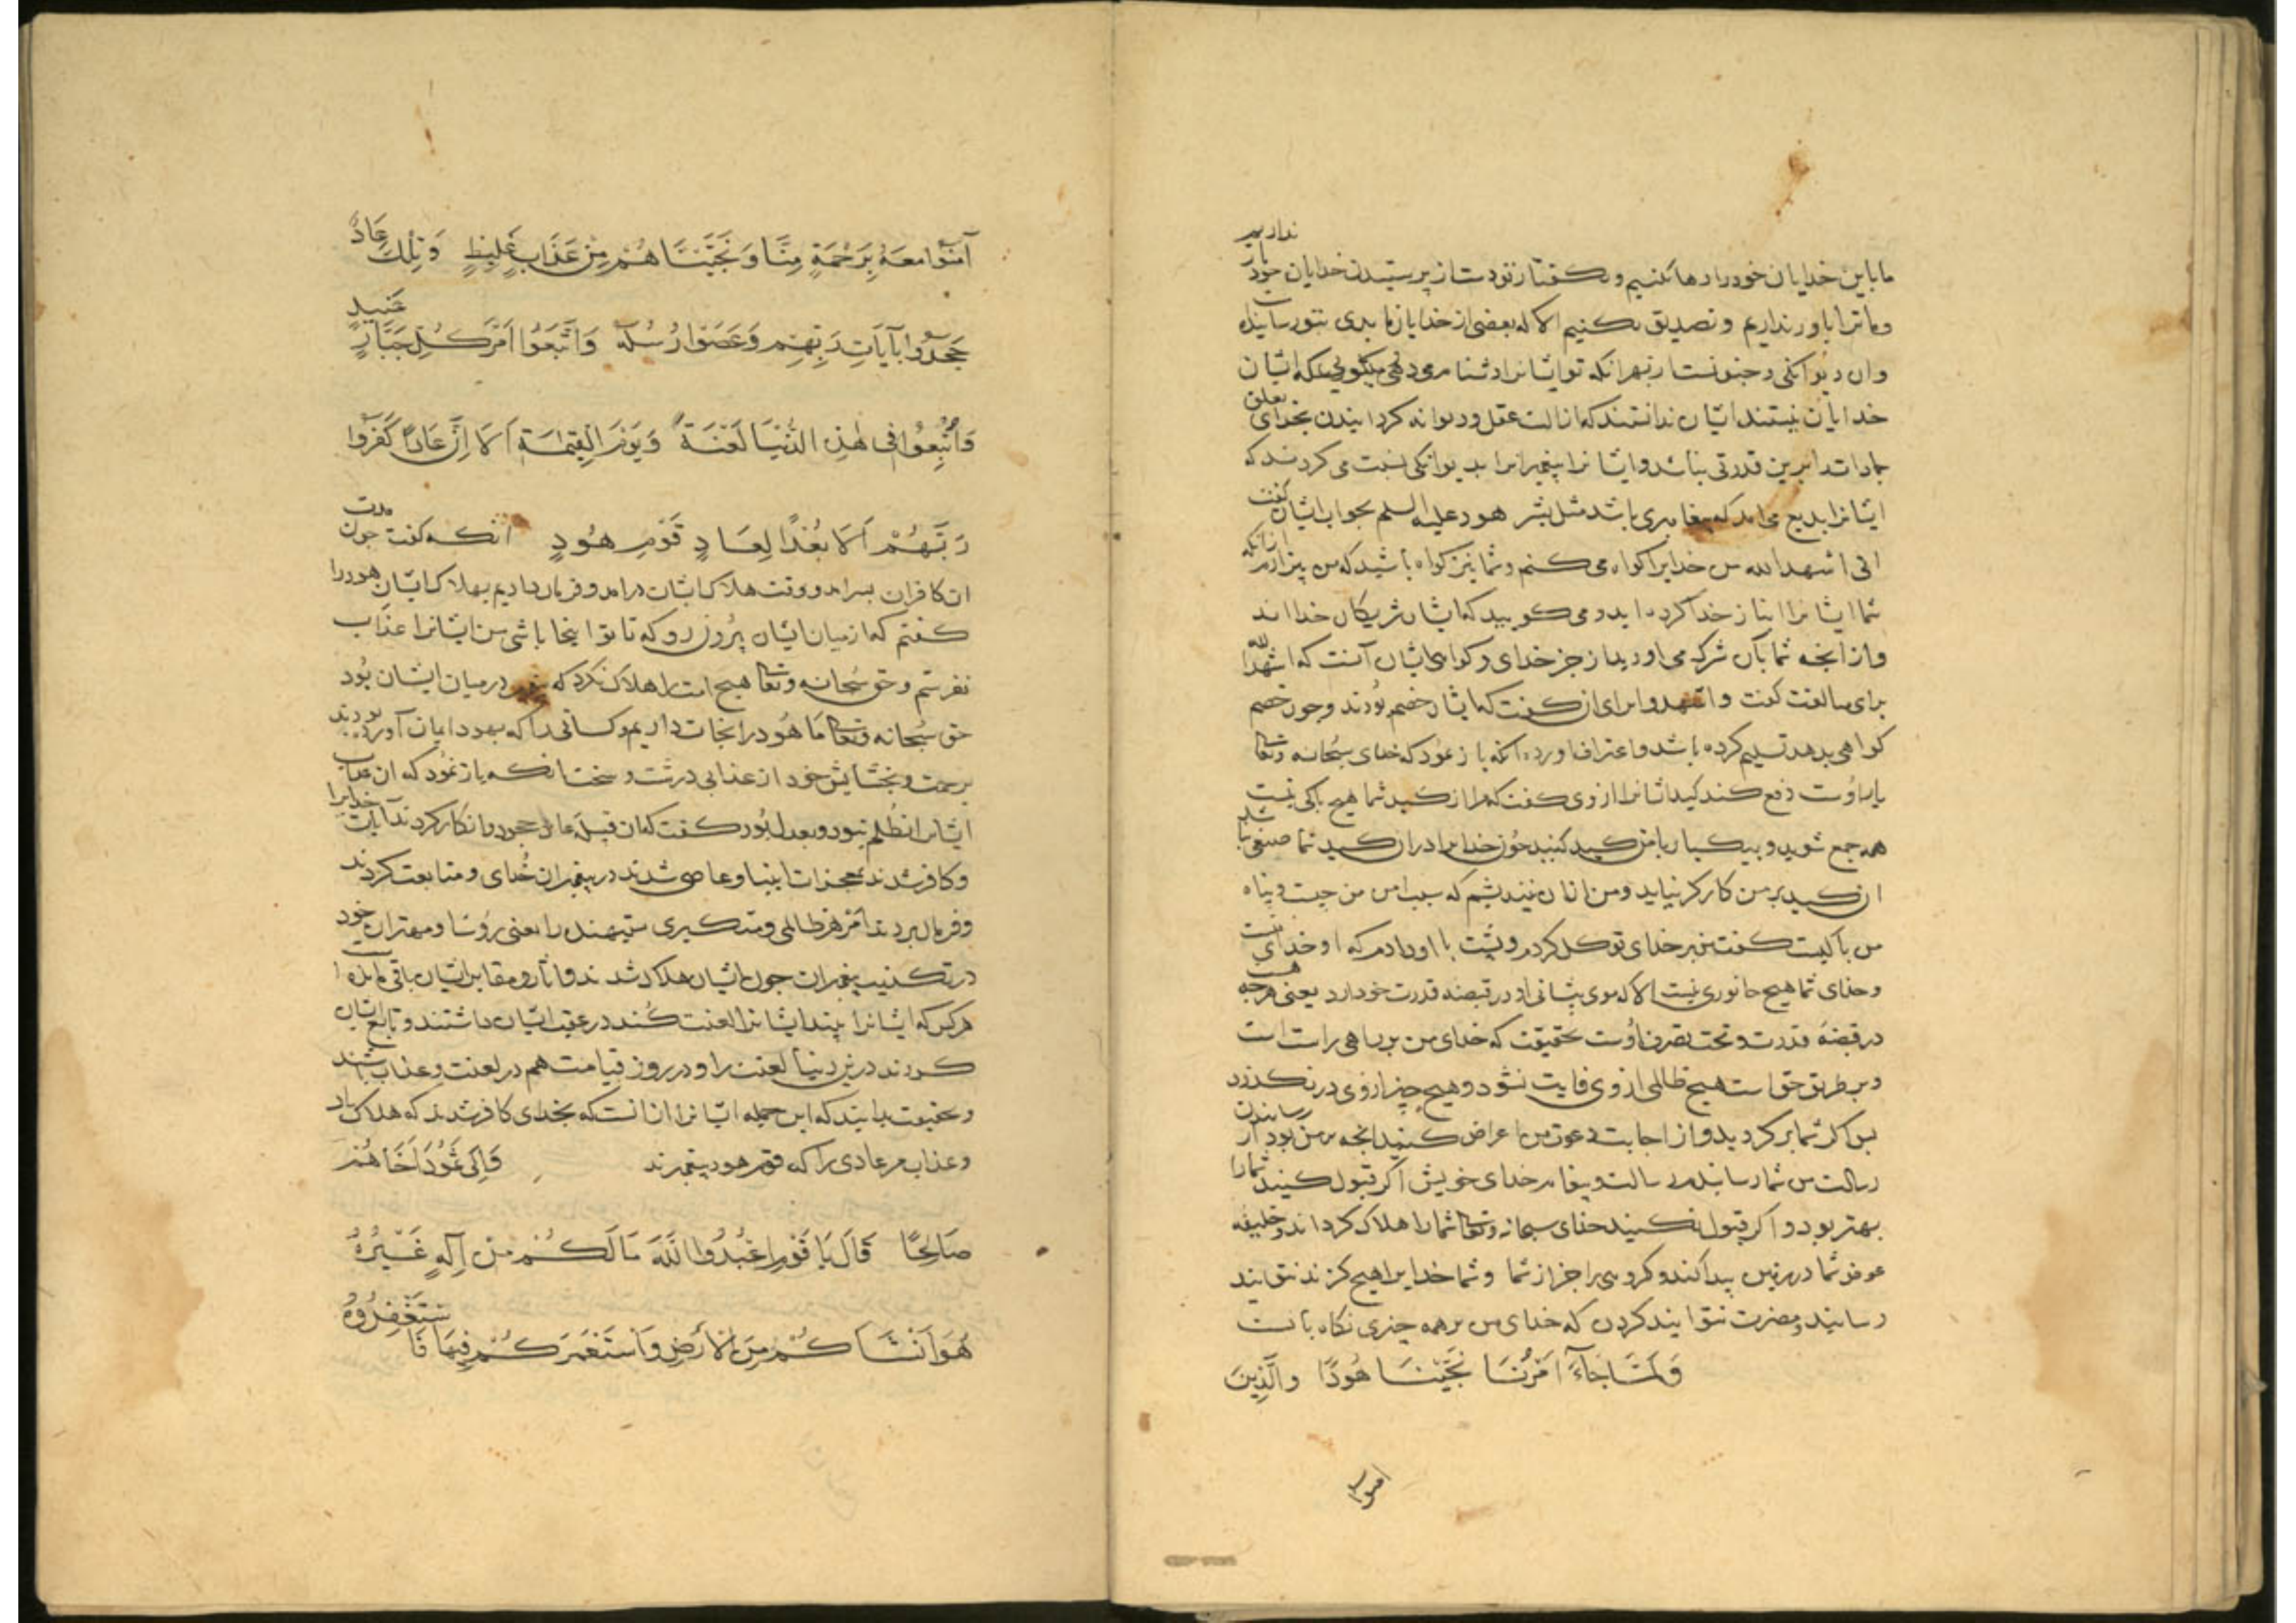 نداریم
ما باین خدایان خود را رها نکنیم و بگفتار تو دست از پرستیدن خدایان خود باز
و ما ترا باور نداریم و تصدیق نکنیم الا که بعضی از خدایان ما بدی بتو رسانیده
و ان دیوانکی و جنونست از بهر انکه تو ایشانرا دشنام می دهی میکویی که ایشان
خدایان نیستند ایشان ندانستند که ازالت عقل و دیوانه کردانیدن بخدای تعلق
جمادات را برین قدرتی نباشد و ایشانرا پیغمبرانرا بدیوانکی نسبت می کردند که
ایشانرا بدیع می امد که پیغامبری باشد مثل بشر هود علیه السلم بجواب ایشان کفت
انی اشهد الله من خدایرا کواه می کنم و شما نیز کواه باشید که من بیزارم از انکه
شما ایشانرا انباز خدا کرده اید و می کویید که ایشان شریکان خدااند
و از انجه شما بآن شرک می اورید از جز خدای و کواهی ایشان آنست که اشهد الله
برای مبالغت کفت و اشهدوا برای ان کفت که ایشان خصم بودند و جون خصم
کواهی بدهد تسلیم کرده باشد و اعتراف اورده انکه باز نمود که خدای سبحانه وتعالی
یاور اوست دفع کند کید ایشانرا از وی کفت که مرا از کید شما هیچ باکی نیست
همه جمع شوید و بیکبار با من کید کنید جون خدای مرا در ان کید شما صنعی باشد
ان کید بر من کارکر نیاید و من از ان نیندیشم که سبب امن من جیست و پناه
من با کیست کفت من بر خدای توکل کردم و پشت با او دادم که او خدای منست
و خدای شما هیچ جانوری نیست الا که موی پیشانی او در قبضه قدرت خود دارد یعنی هرجه هست
در قبضهٔ قدرت و تحت تصرف اوست بحقیقت که خدای من بر راهی راست است
و بر طریق حق است هیچ ظالمی از وی فایت نشود و هیچ چیز از وی در نکذرد
بس اکر شما بر کردید و از اجابت دعوت من اعراض کنید انجه بر من بود از رسانیدن
رسالت من شما رسانیدم رسالت و پیغام خدای خویش اکر قبول کنید شما را
بهتر بود و اکر قبول نکنید خدای سبحانه وتعالی شما را هلاک کرداند و خلیفه
عوض شما در زمین پیدا کند و کروهی را جز از شما و شما خدایرا هیچ کزند نتوانید
رسانید و مضرت نتوانید کردن که خدای من بر همه چیزی نکاه بانست
وَلَمَّا جَآءَ اَمْرُنَا نَجَّيْنَا هُودًا والَّذِينَ
امنوا
آمَنُوا مَعَهُ بِرَحْمَةٍ مِنَّا وَنَجَّيْنَاهُمْ مِنْ عَذَابٍ غَلِيظٍ وَتِلْكَ عَادٌ
جَحَدُوا بِآيَاتِ رَبِّهِمْ وَعَصَوْا رُسُلَهُ وَاتَّبَعُوا اَمْرَ كُلِّ جَبَّارٍ عَنِيدٍ
وَاُتْبِعُوا فِي هٰذِهِ الدُّنْيَا لَعْنَةً وَيَوْمَ الْقِيٰمَةِ اَلَا اِنَّ عَادًا كَفَرُوا
رَبَّهُمْ اَلَا بُعْدًا لِعَادٍ قَوْمِ هُودٍ انکه کفت جون مدت
ان کافران بسر امد و وقت هلاک ایشان درامد و فرمان دادیم بهلاک ایشان هود را
کفتم که از میان ایشان بیرون رو که تا تو اینجا باشی من ایشانرا عذاب
نفرستم و حق سبحانه وتعالی هیچ امت را هلاک نکرد که پیغمبر در میان ایشان بود
حق سبحانه وتعالی ما هود را نجات دادیم و کسانی را که بهود ایمان آورده بودند
برحمت و بخشایش خود از عذابی درشت و سخت انکه باز نمود که ان عذاب
ایشانرا نه ظلم نبود و بعدل بود کفت که ان قبیله عاد جحود و انکار کردند آیات خدایرا
و کافر شدند بمعجزات انبیا و عاصی شدند در پیغمبران خدای و متابعت کردند
و فرمان بردند امر هر ظالمی و متکبری ستیهنده را یعنی رؤسا و مهتران خود
در تکذیب پیغمبران جون ایشان هلاک شدند و آثار و مقابر ایشان باقی مانده است
هر کس که ایشانرا بیند ایشانرا لعنت کند در عقب ایشان داشتند و تابع ایشان
کردند درین دنیا لعنت را و در روز قیامت هم در لعنت و عذاب باشند
و بحقیقت بدانید که این جمله ایشانرا از انست که بخدای کافر شدند که هلاک باد
و عذاب مر عادی را که قوم هود پیغمبرند وَاِلٰى ثَمُودَ اَخَاهُمْ
صَالِحًا قَالَ يَا قَوْمِ اعْبُدُوا اللّٰهَ مَا لَكُمْ مِنْ اِلٰهٍ غَيْرُهُ
هُوَ اَنْشَاَكُمْ مِنَ الْاَرْضِ وَاسْتَعْمَرَكُمْ فِيهَا فَاسْتَغْفِرُوهُ